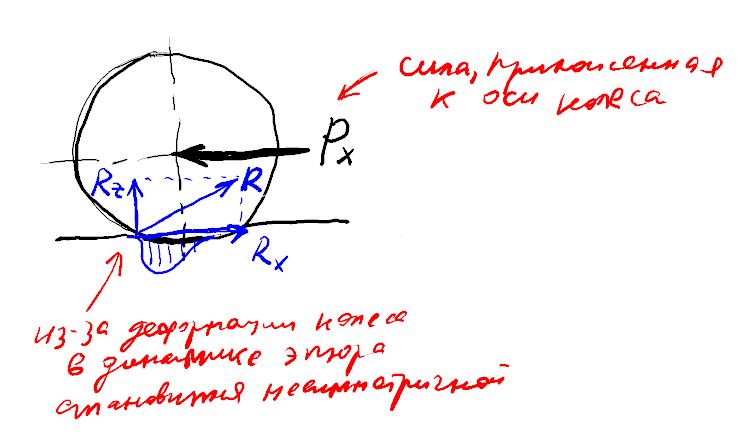 сила, приложенная
к оси колеса
Px
Rz
R
Rx
из-за деформации колеса
в динамике эпюра
становится несимметричной